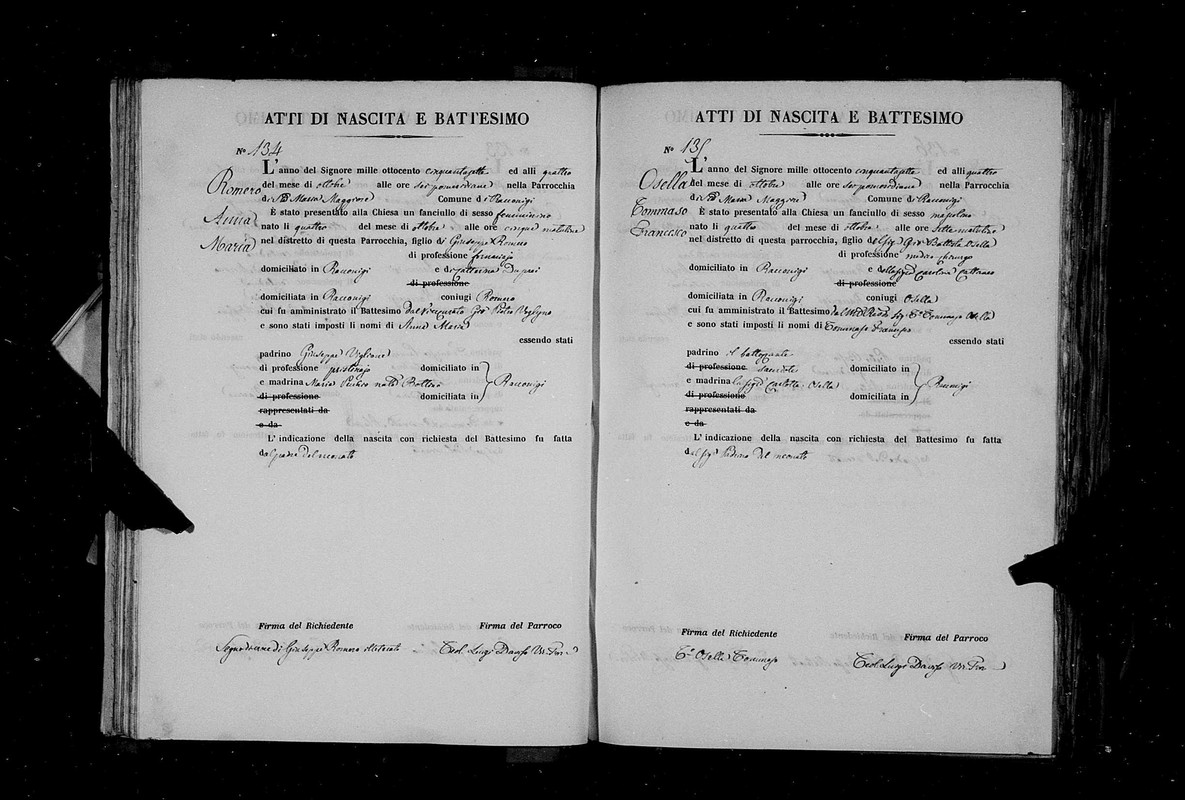 ATTI DI NASCITA E BATTESIMO
N° 134
Romero
Anna
Maria
L'anno del Signore mille ottocento cinquantasette ed alli quattro
del mese di ottobre alle ore sei pomeridiane nella Parrocchia
di Sta Maria Maggiore Comune di Racconigi
È stato presentato alla Chiesa un fanciullo di sesso femminino
nato li quattro del mese di ottobre alle ore cinque matutine
nel distretto di questa Parrocchia, figlio di Giuseppe Romero
di professione fornaciajo
domiciliato in Racconigi e di Catterina
di professione
domiciliata in Racconigi coniugi Romero
cui fu amministrato il Battesimo dal Vicecurato Gio Pietro
e sono stati imposti li nomi di Anna Maria
essendo stati
padrino Giuseppe Vigliano
di professione pristinajo domiciliato in
e madrina Maria nata Racconigi
di professione domiciliata in
rappresentati da
e da
L'indicazione della nascita con richiesta del Battesimo fu fatta
dal padre del neonato
Firma del Richiedente Firma del Parroco
Segno di croce di Giuseppe Romero illiterato Teol. Luigi
ATTI DI NASCITA E BATTESIMO
N° 135
Osella
Tommaso
Francesco
L'anno del Signore mille ottocento cinquantasette ed alli quattro
del mese di ottobre alle ore sei pomeridiane nella Parrocchia
di Sta Maria Maggiore Comune di Racconigi
È stato presentato alla Chiesa un fanciullo di sesso mascolino
nato li quattro del mese di ottobre alle ore sette matutine
nel distretto di questa parrocchia, figlio del Sig. Gio Battista Osella
di professione medico chirurgo
domiciliato in Racconigi e della Sigra Carolina Cattaneo
di professione
domiciliata in Racconigi coniugi Osella
cui fu amministrato il Battesimo dal Tommaso Osella
e sono stati imposti li nomi di Tommaso Francesco
essendo stati
padrino il battezzante
di professione sacerdote domiciliato in
e madrina la Sigra Carlotta Osella Racconigi
di professione domiciliata in
rappresentati da
e da
L'indicazione della nascita con richiesta del Battesimo fu fatta
dal Sig. Padrino del neonato
Firma del Richiedente Firma del Parroco
T. Osella Tommaso Teol. Luigi